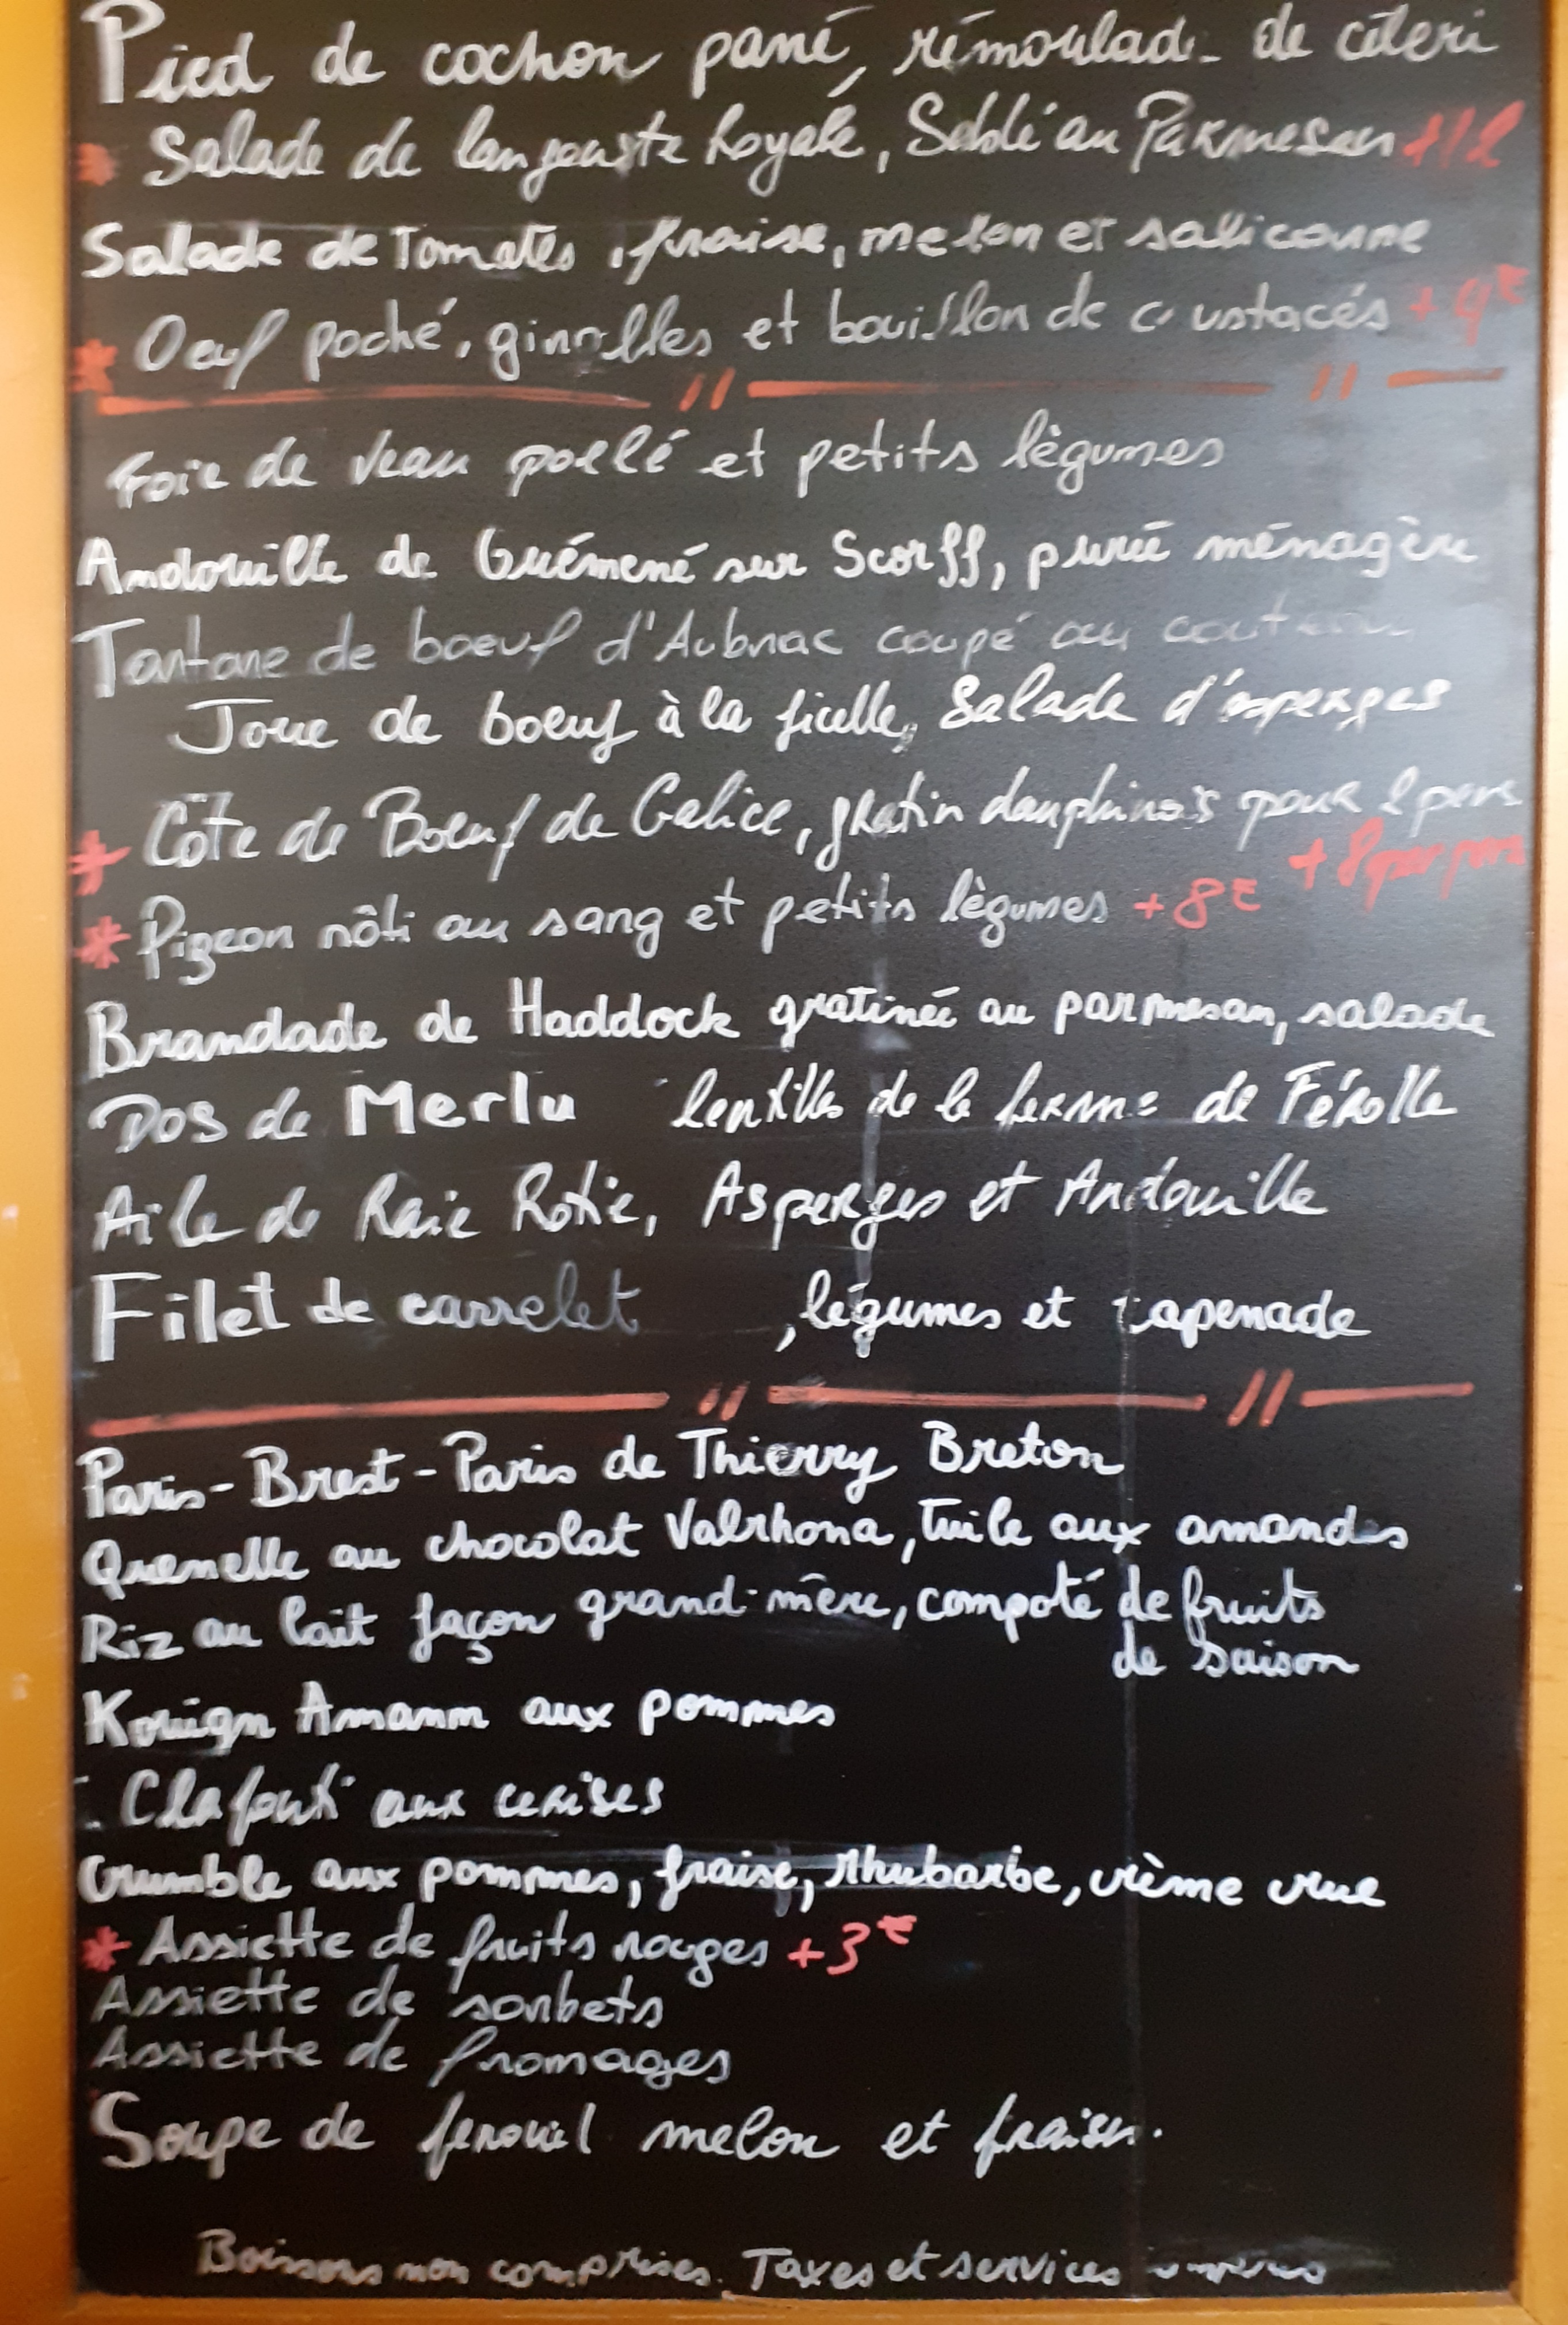 Pied de cochon pané, rémoulade de céleri
* Salade de langouste Royale, Sablé au Parmesan +12
Salade de Tomates, fraise, melon et salicorne
* Oeuf poché, girolles et bouillon de crustacés + 4€
Foie de veau poellé et petits légumes
Andouille de Guémené sur Scorff, purée ménagère
Tartare de boeuf d'Aubrac coupé au couteau
Joue de boeuf à la ficelle, Salade d'asperges
* Côte de Boeuf de Galice, gratin dauphinois pour 2 pers
+ 8 par pers
* Pigeon rôti au sang et petits légumes + 8€
Brandade de Haddock gratinée au parmesan, salade
Dos de Merlu lentilles de la ferme de Férolle
Aile de Raie Rotie, Asperges et Andouille
Filet de carrelet , légumes et tapenade
Paris-Brest-Paris de Thierry Breton
Quenelle au chocolat Valrhona, Tuile aux amandes
Riz au lait façon grand-mère, compoté de fruits
de saison
Kouign Amann aux pommes
Clafouti aux cerises
Crumble aux pommes, fraise, rhubarbe, crème crue
* Assiette de fruits rouges +3€
Assiette de sorbets
Assiette de fromages
Soupe de fenouil melon et fraises.
Boissons non comprises. Taxes et services compris